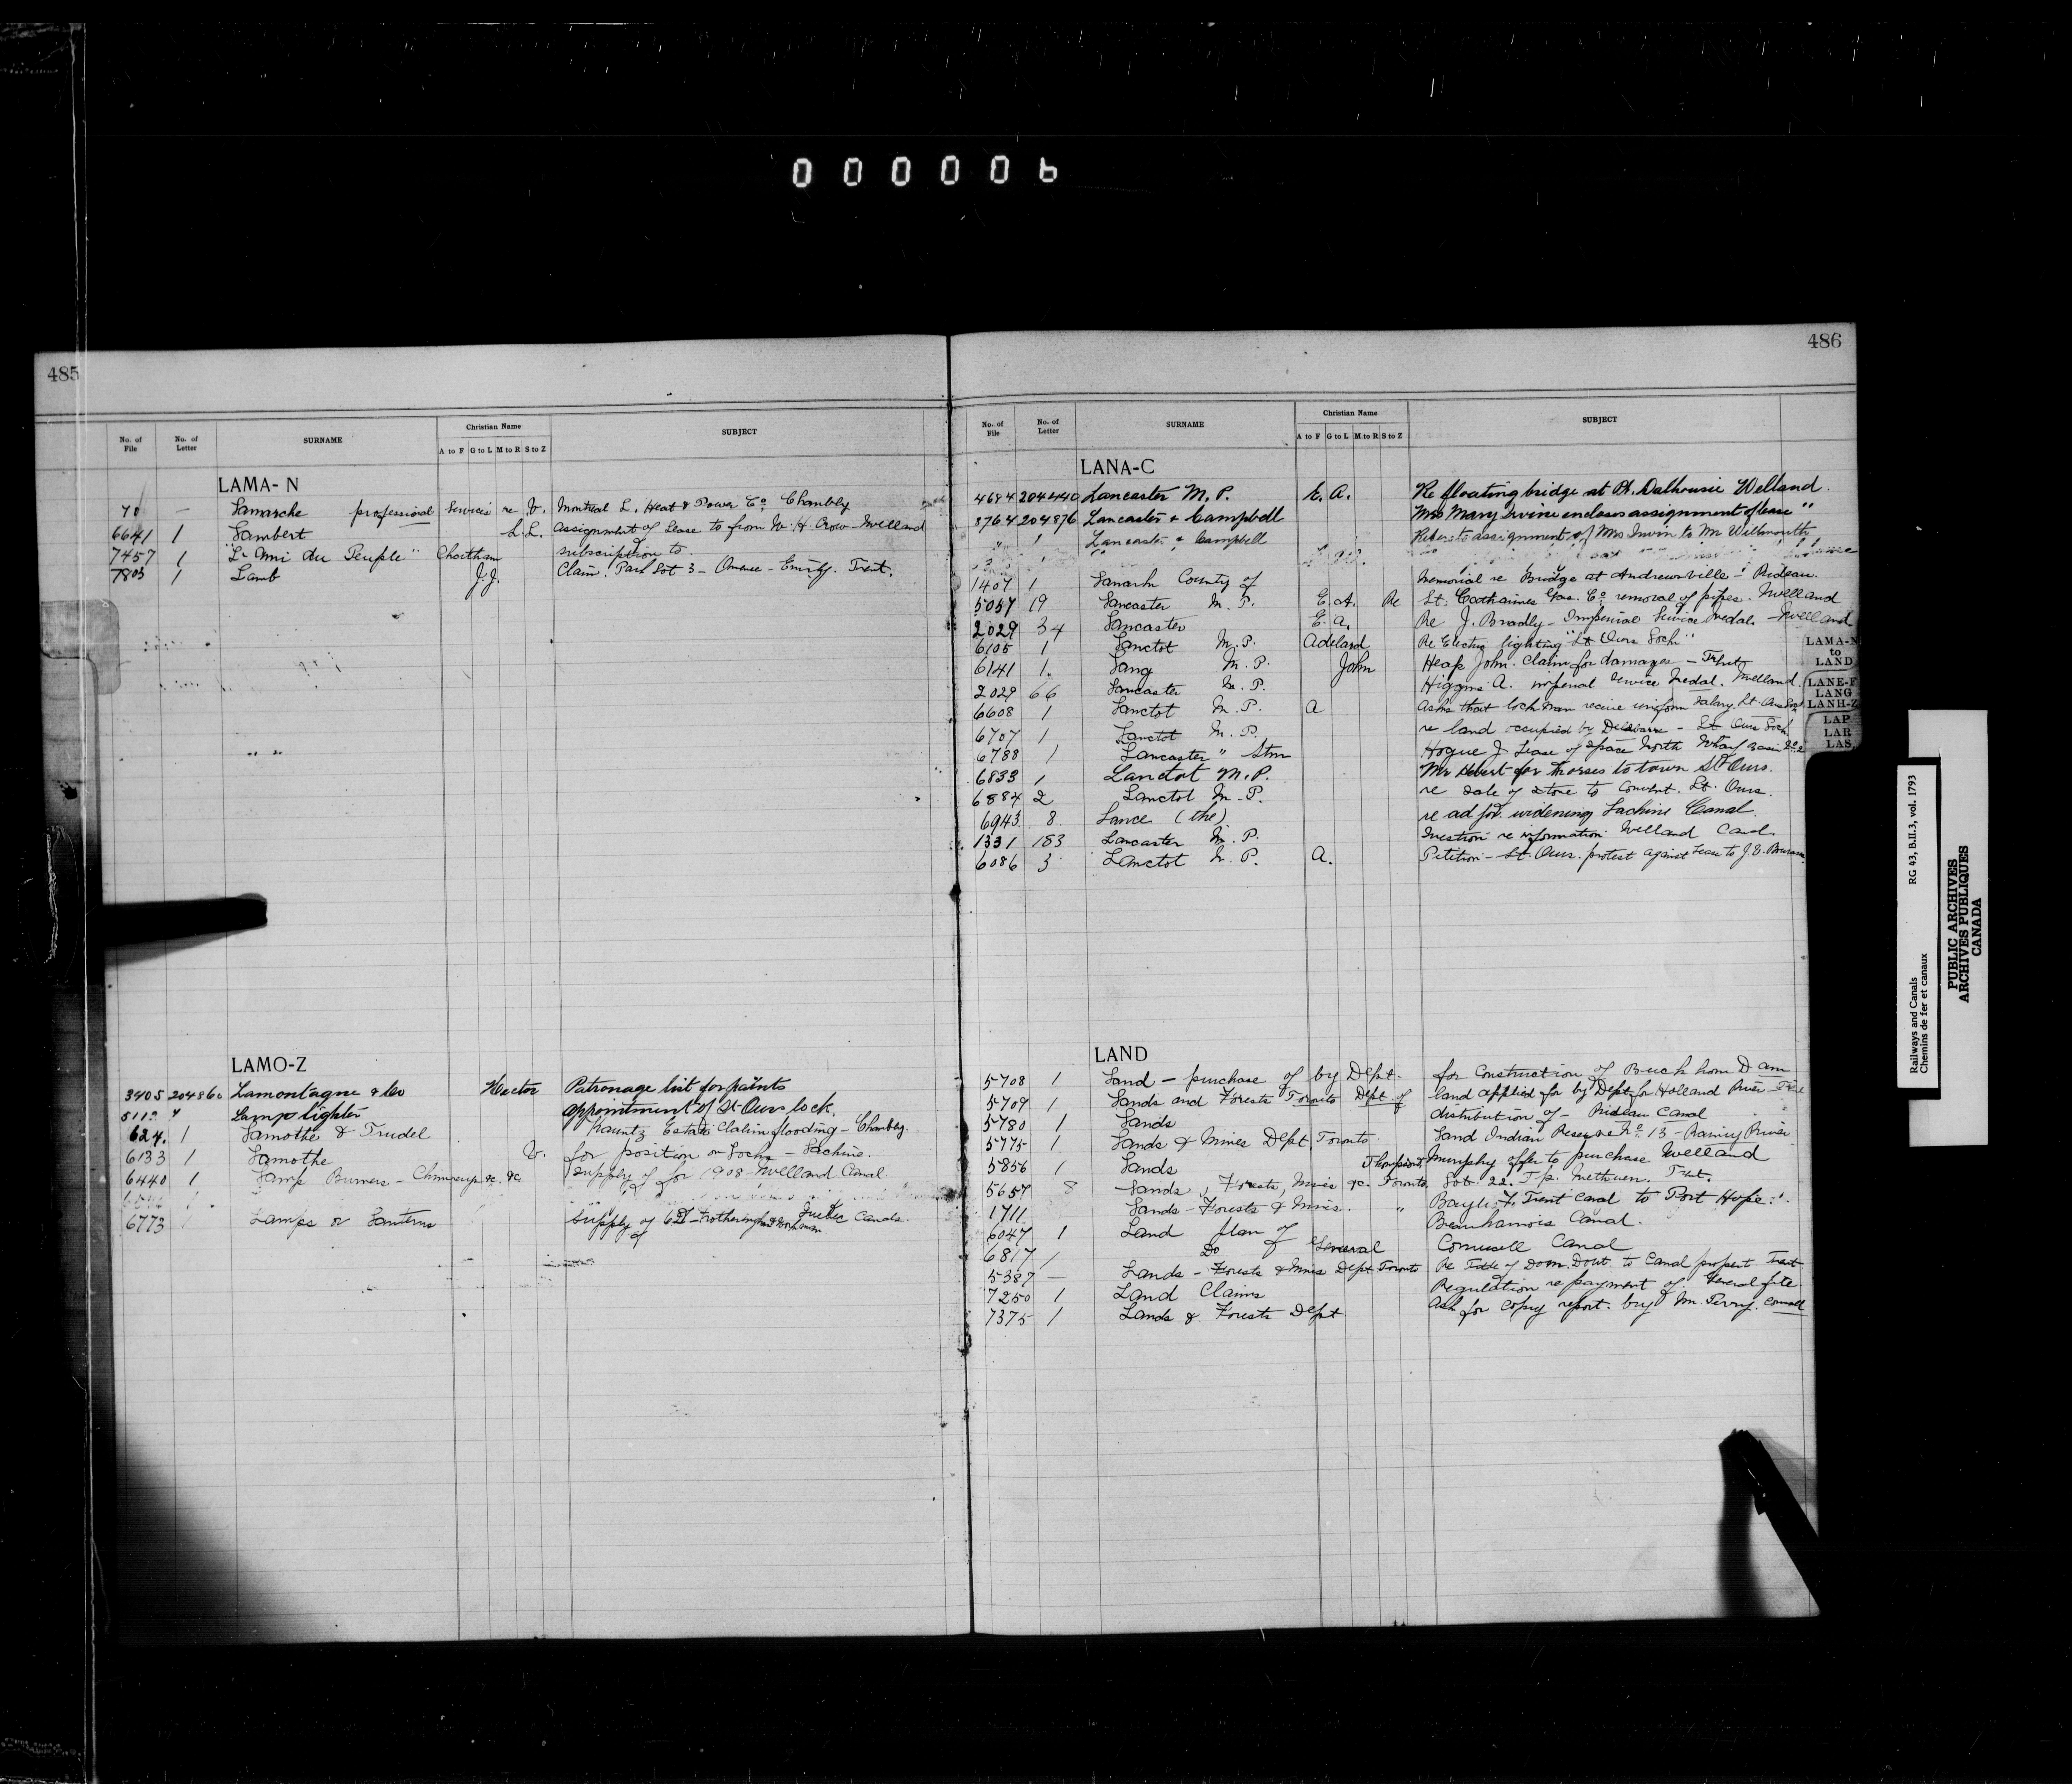 000006
485
No. of File No. of Letter SURNAME Christian Name SUBJECT
A to F G to L M to R S to Z
LAMA-N
70 — Lamarche professional services re W. Montreal L. Heat & Power Co. Chambly
6641 1 Lambert L.L. assignment of Lease to from W. H. Crow - Welland
7457 1 "L'Ami du Peuple" subscription to
7803 1 Lamb J.J. Claim. Park Lot 3 - Omemee - Emily. Trent.
LAMO-Z
3405 Lamontagne & Co Hector Patronage list for paints
Lamp lighter appointment of St. Ours lock.
624. 1 Lamothe & Trudel Estate Claim flooding - Chambly.
6133 1 Lamothe W. for position on Locks - Lachine.
6440 1 Lamp Burners - Chimneys &c. &c. supply of for 1908 - Welland Canal
6773 Lamps or Lanterns Supply of Quebec Canals.
486
No. of File No. of Letter SURNAME Christian Name SUBJECT
A to F G to L M to R S to Z
LANA-C
4684 204440 Lancaster M.P. E.A. Re floating bridge at Pt. Dalhousie Welland.
8764 204876 Lancaster & Campbell Mrs Mary Irvine encloses assignment of lease "
" 1 Lancaster & Campbell Refers to assignment of Mrs Irvin to Mr Wilmouth
1407 1 Lanark County of Memorial re Bridge at Andrewsville - Rideau.
5057 19 Lancaster M.P. E.A. Re St. Catharines Gas. Co. removal of pipes. Welland
2029 34 Lancaster E.A. Re J. Bradly - Imperial Service Medal - Welland.
6105 1 Lanctot M.P. Adelard Re Electric lighting "St Ours Lock"
6141 1. Lang M.P. John Heap John. Claim for damages - Trent
2029 66 Lancaster M.P. Higgins A. Imperial Service Medal. Welland.
6608 1 Lanctot M.P. A Asks that lock men receive uniform salary. St. Ours Lock
6707 1 Lanctot M.P. re land occupied by - St Ours Lock
6788 1 Lancaster " Stm Hogue J Lease of space North Wharf Basin No. 2
6833 1 Lanctot M.P. Mr Hebert for horses to tow in St Ours.
6884 2 Lanctot M.P. re sale of stone to Convent. St. Ours.
6943 8 Lance (the) re ad for widening Lachine Canal
1331 183 Lancaster M.P. Question re information Welland Canal.
6086 3 Lanctot M.P. A. Petition - St. Ours. protest against lease to J.E.
LAND
5708 1 Land - purchase of by Dept. for Construction of Buckhorn Dam
5709 1 Lands and Forests Toronto Dept of land applied for by Dept for Holland River - Trent
5780 1 Lands distribution of - Rideau Canal
5775 1 Lands & Mines Dept. Toronto Land Indian Reserve No. 13 - Rainy River
5856 1 Lands Thompson, Murphy offer to purchase Welland
5657 8 Lands, Forests, Mines &c. Toronto. Lot 22. Tp. Methuen. Trent.
1711 Lands - Forests & Mines. " Trent Canal to Port Hope.
6047 1 Land plan of Beauharnois Canal.
6817 1 Do General Cornwall Canal
5387 — Lands - Forests & Mines Dept Toronto Re Title of Dom. Govt. to Canal propert Trent
7250 1 Land Claims Regulation re payment of General file
7375 1 Lands & Forests Dept Ask for copy report by Mr. Perry. Cornwall
LAMA-N
to
LAND
LANE-F
LANG
LANH-Z
LAP
LAR
LAS
Railways and Canals RG 43, B.II.3, vol. 1793
Chemins de fer et canaux
PUBLIC ARCHIVES
ARCHIVES PUBLIQUES
CANADA